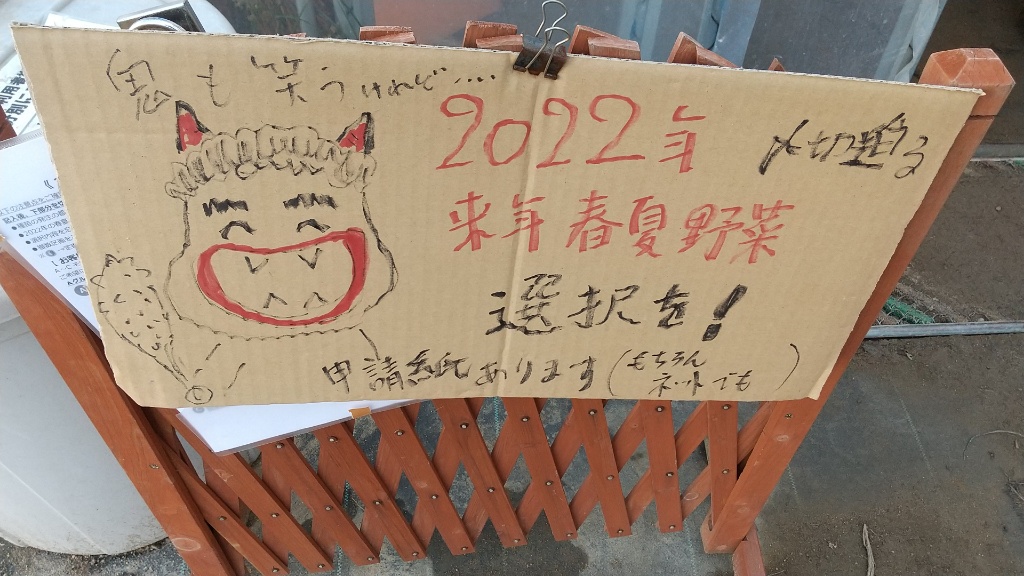 鬼も笑うけれど....
2022年
〆切迫る
来年春夏野菜
選択を!
申請紙あります(もちろんネットでも)